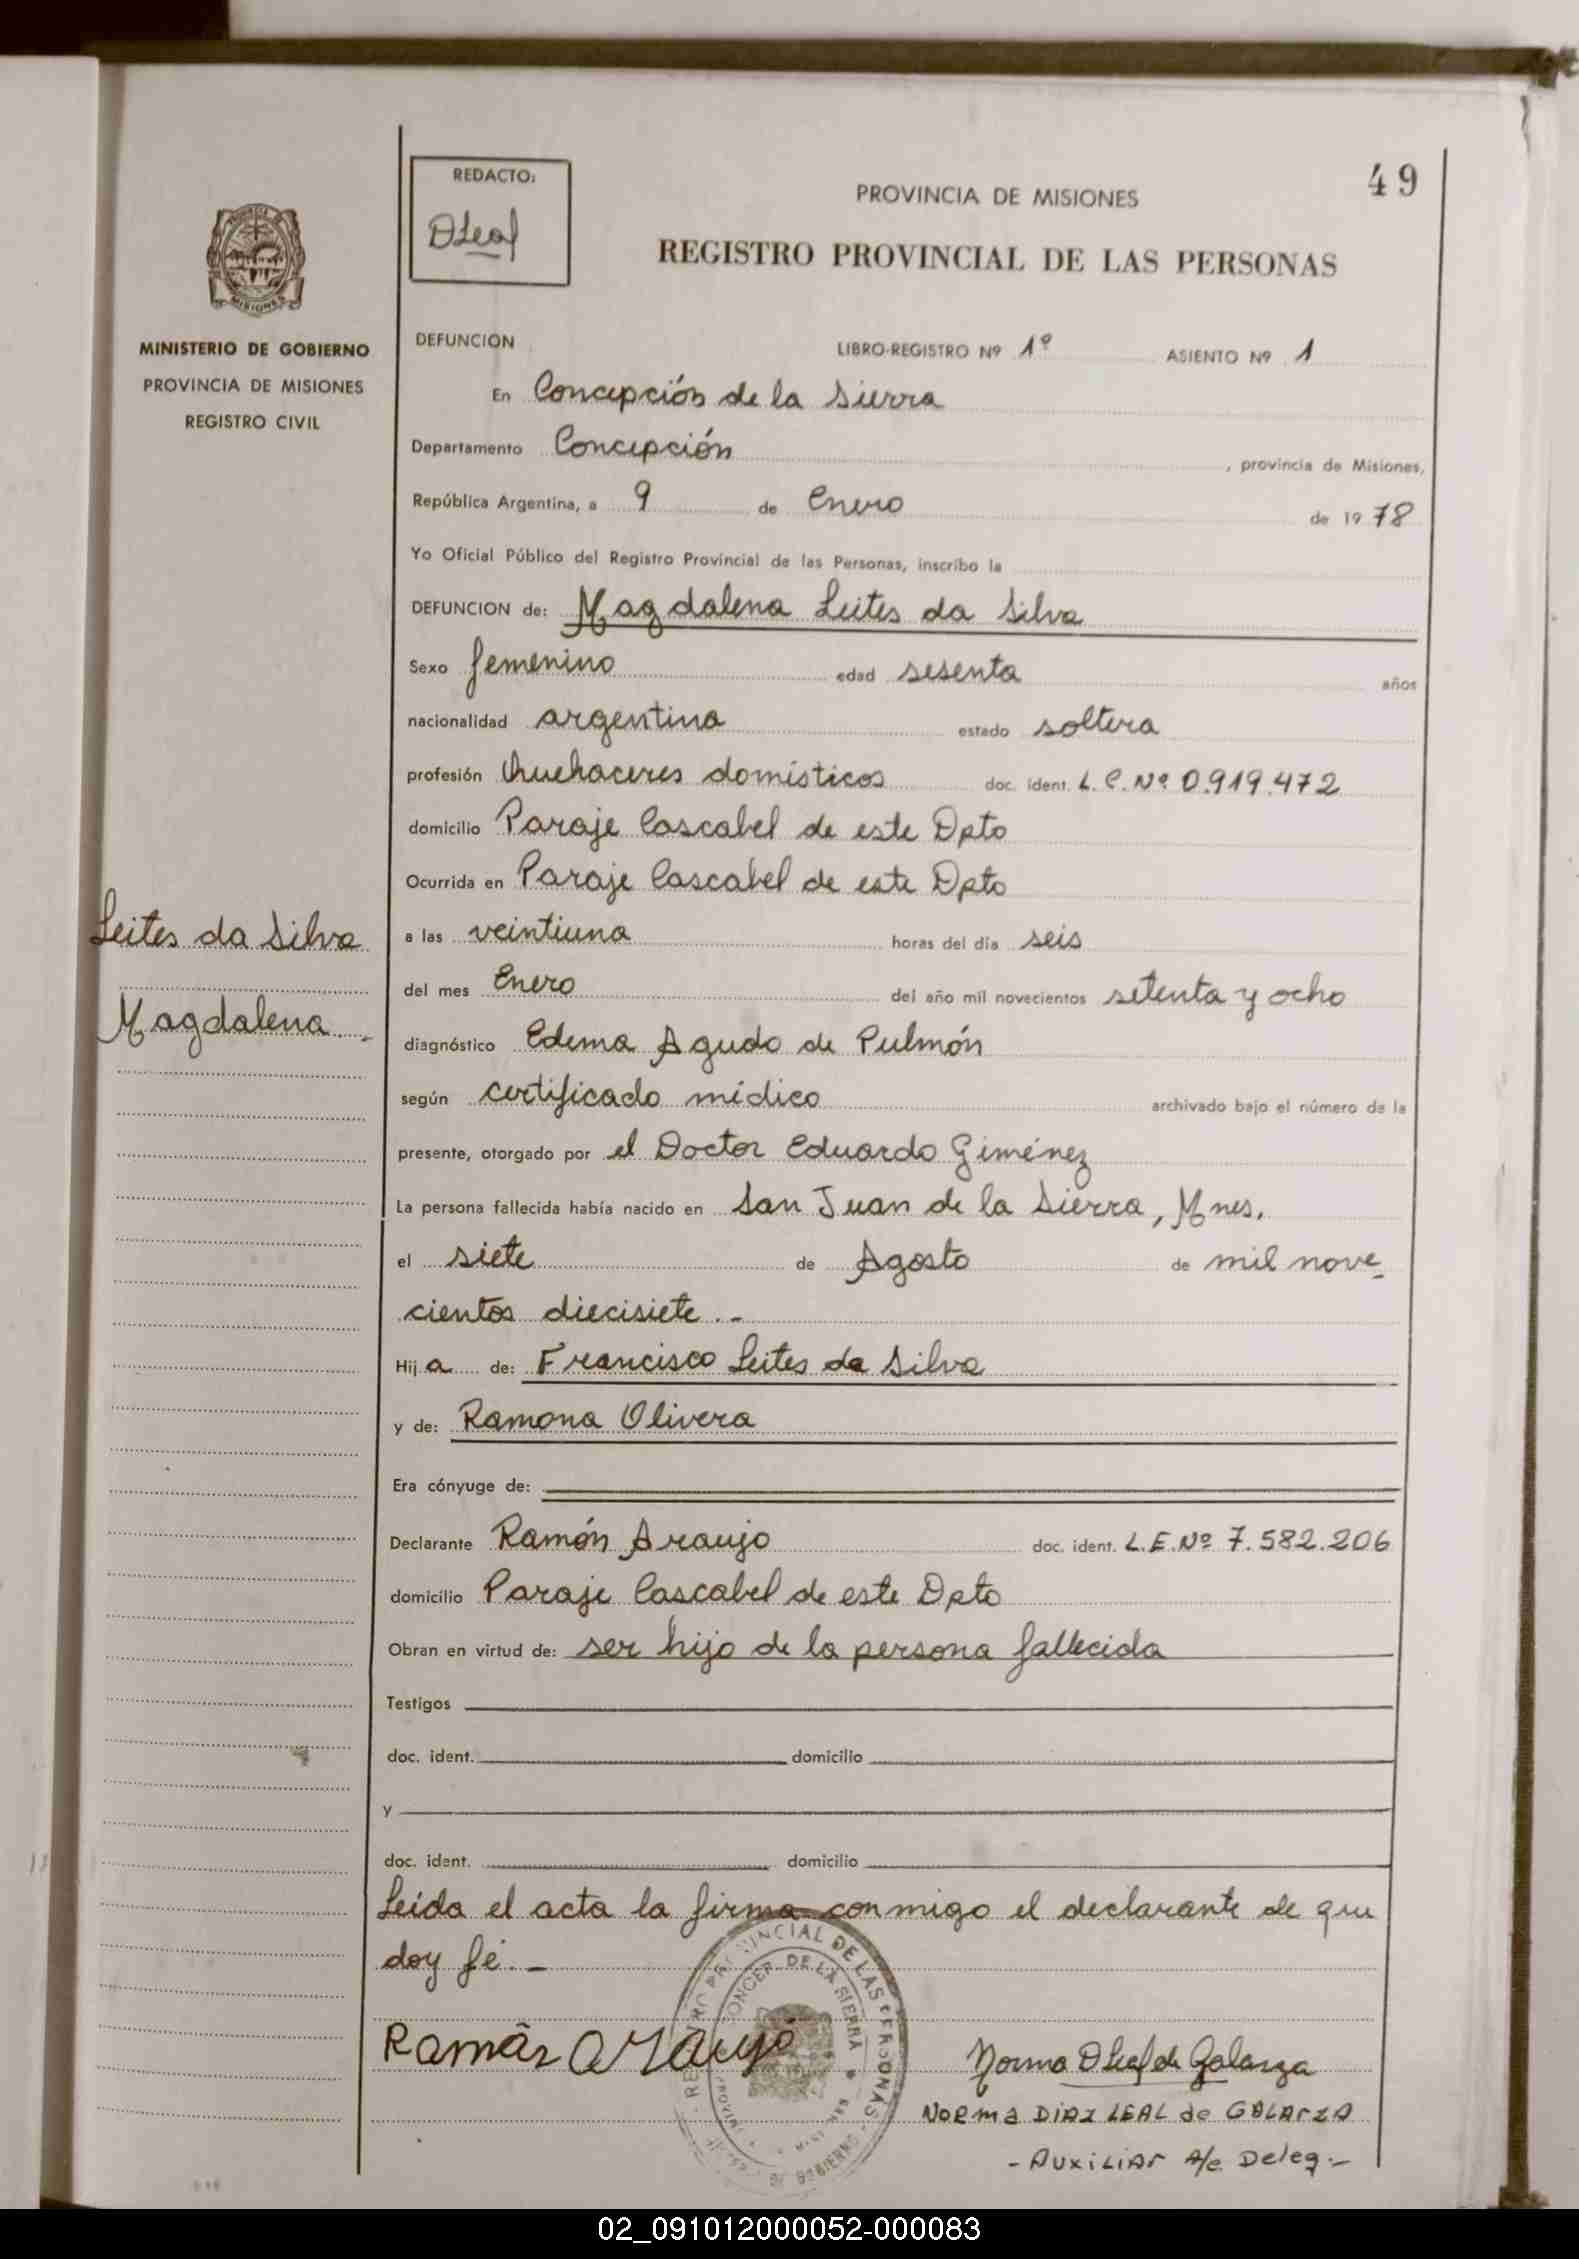 49
REDACTO:
DLeal
PROVINCIA DE MISIONES
REGISTRO PROVINCIAL DE LAS PERSONAS
MISIONES
MINISTERIO DE GOBIERNO
PROVINCIA DE MISIONES
REGISTRO CIVIL
DEFUNCION LIBRO-REGISTRO Nº 1º ASIENTO Nº 1
En Concepción de la Sierra
Departamento Concepción , provincia de Misiones,
República Argentina, a 9 de Enero de 1978
Yo Oficial Público del Registro Provincial de las Personas, inscribo la
DEFUNCION de: Magdalena Leites da Silva
Sexo femenino edad sesenta años
nacionalidad argentina estado soltera
profesión Quehaceres domésticos doc. ident. L.C. Nº 0.919.472
domicilio Paraje Cascabel de este Dpto
Ocurrida en Paraje Cascabel de este Dpto
Leites da Silva
Magdalena.-
a las veintiuna horas del día seis
del mes Enero del año mil novecientos setenta y ocho
diagnóstico Edema Agudo de Pulmón
según certificado médico archivado bajo el número de la
presente, otorgado por el Doctor Eduardo Giménez
La persona fallecida había nacido en San Juan de la Sierra, Mnes.
el siete de Agosto de mil nove-
cientos diecisiete.-
Hija de: Francisco Leites da Silva
y de: Ramona Olivera
Era cónyuge de:
Declarante Ramón Araujo doc. ident. L.E. Nº 7.582.206
domicilio Paraje Cascabel de este Dpto
Obran en virtud de: ser hijo de la persona fallecida
Testigos
doc. ident. domicilio
y
doc. ident. domicilio
Leída el acta la firma conmigo el declarante de que
doy fé.-
Ramón Araujo
REGISTRO PROVINCIAL DE LAS PERSONAS
CONCEP. DE LA SIERRA
Norma DLeal de Galarza
NORMA DIAZ LEAL de GALARZA
- AUXILIAR A/c Deleg.-
02_091012000052-000083